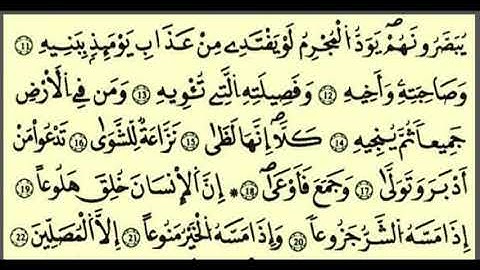 يُبَصَّرُونَهُمْ ۚ يَوَدُّ الْمُجْرِمُ لَوْ يَفْتَدِي مِنْ عَذَابِ يَوْمِئِذٍ بِبَنِيهِ ١١
وَصَاحِبَتِهِ وَأَخِيهِ ١٢ وَفَصِيلَتِهِ الَّتِي تُـْٔوِيهِ ١٣ وَمَن فِي الْأَرْضِ
جَمِيعًا ثُمَّ يُنجِيهِ ١٤ كَلَّا ۖ إِنَّهَا لَظَىٰ ١٥ نَزَّاعَةً لِّلشَّوَىٰ ١٦ تَدْعُوا مَنْ
أَدْبَرَ وَتَوَلَّىٰ ١٧ وَجَمَعَ فَأَوْعَىٰ ١٨ * إِنَّ الْإِنسَانَ خُلِقَ هَلُوعًا ١٩
إِذَا مَسَّهُ الشَّرُّ جَزُوعًا ٢٠ وَإِذَا مَسَّهُ الْخَيْرُ مَنُوعًا ٢١ إِلَّا الْمُصَلِّينَ ٢٢